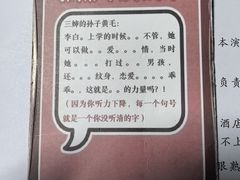 三婶的孙子黄毛：
李白。上学的时候。。不管，她
可以做。。爱。。。。情，当时
她。。。。打过。。男孩，
还。。。纹身，恋爱。。。。
乖乖，这就是。。的力量吗？！
（因为你听力下降，每一个句号
就是一个你没听清的字）
本演
负责
酒店
不上
眼熟